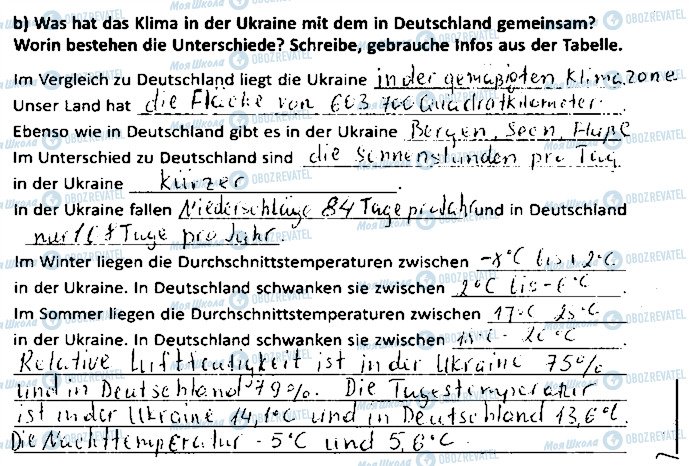 b) Was hat das Klima in der Ukraine mit dem in Deutschland gemeinsam?
Worin bestehen die Unterschiede? Schreibe, gebrauche Infos aus der Tabelle.
Im Vergleich zu Deutschland liegt die Ukraine in der gemäßigten Klimazone
Unser Land hat die Fläche von 603 700 Quadratkilometer.
Ebenso wie in Deutschland gibt es in der Ukraine Bergen, Seen, Flüße
Im Unterschied zu Deutschland sind die Sonnenstunden pro Tag
in der Ukraine kürzer.
In der Ukraine fallen Niederschläge 84 Tage pro Jahr und in Deutschland
nur Tage pro Jahr.
Im Winter liegen die Durchschnittstemperaturen zwischen -8°C bis 2°C
in der Ukraine. In Deutschland schwanken sie zwischen 2°C bis -6°C.
Im Sommer liegen die Durchschnittstemperaturen zwischen 17°C 25°C
in der Ukraine. In Deutschland schwanken sie zwischen
Relative Luftfeutigkeit ist in der Ukraine 75%
und in Deutschland 79%. Die Tagestemperatur
ist in der Ukraine 14,1°C und in Deutschland 13,6°C.
Die Nachttemperatur -5°C und 5,6°C.